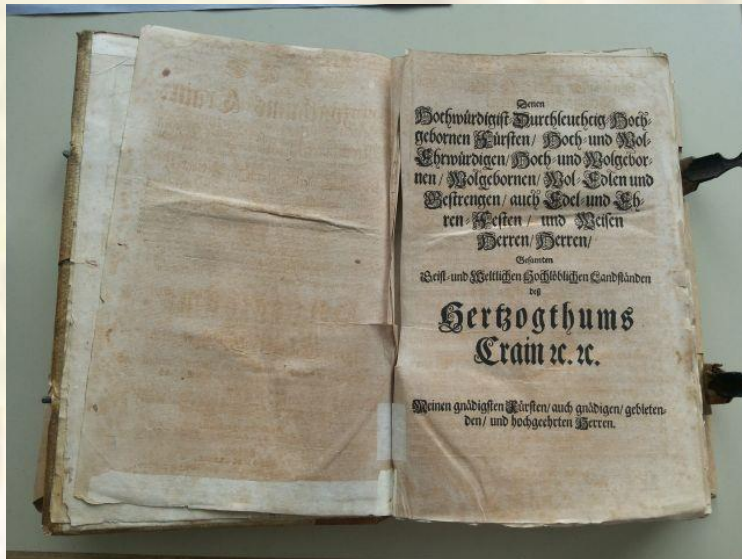 Denen
Hochwürdigist-Durchleuchtig-Hoch-
gebornen Fürsten/ Hoch- und Wol-
Ehrwürdigen/ Hoch- und Wolgebor-
nen/ Wolgebornen/ Wol-Edlen und
Gestrengen/ auch Edel- und Eh-
ren-Festen/ und Weisen
Herren/ Herren/
Gesamten
Geist- und Weltlichen Hochlöblichen Landständen
deß
Hertzogthums
Crain ꝛc. ꝛc.
Meinen gnädigsten Fürsten/ auch gnädigen/ gebieten-
den/ und hochgeehrten Herren.